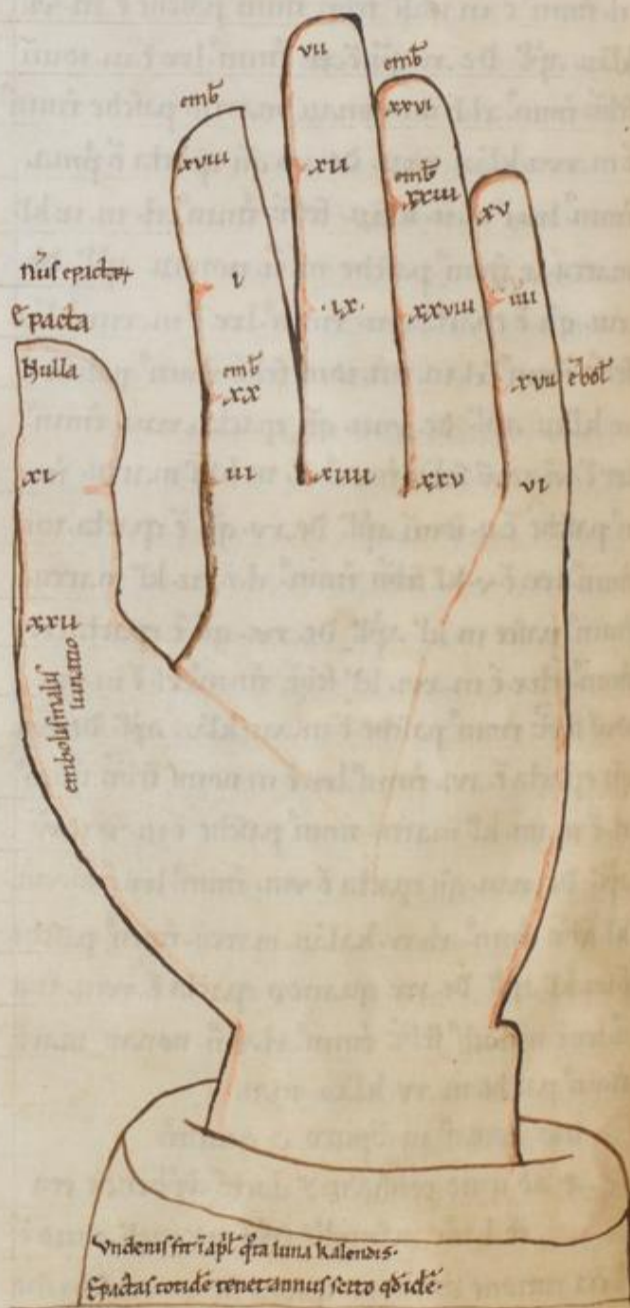 nus epactar
epacta
Nulla
xi
xxii
embolismalis
lunatio
emb̄
xviii
i
emb̄
xx
iii
vii
xii
.ix.
xiiii
emb̄
xxvi
emb̄
xxiii
xxviii
xxv
xv
iiii
xvii ēbol̄
vi
Vndenis fit ī apl̄ luna kalendis.
Epactas totidē tenet annus idē.